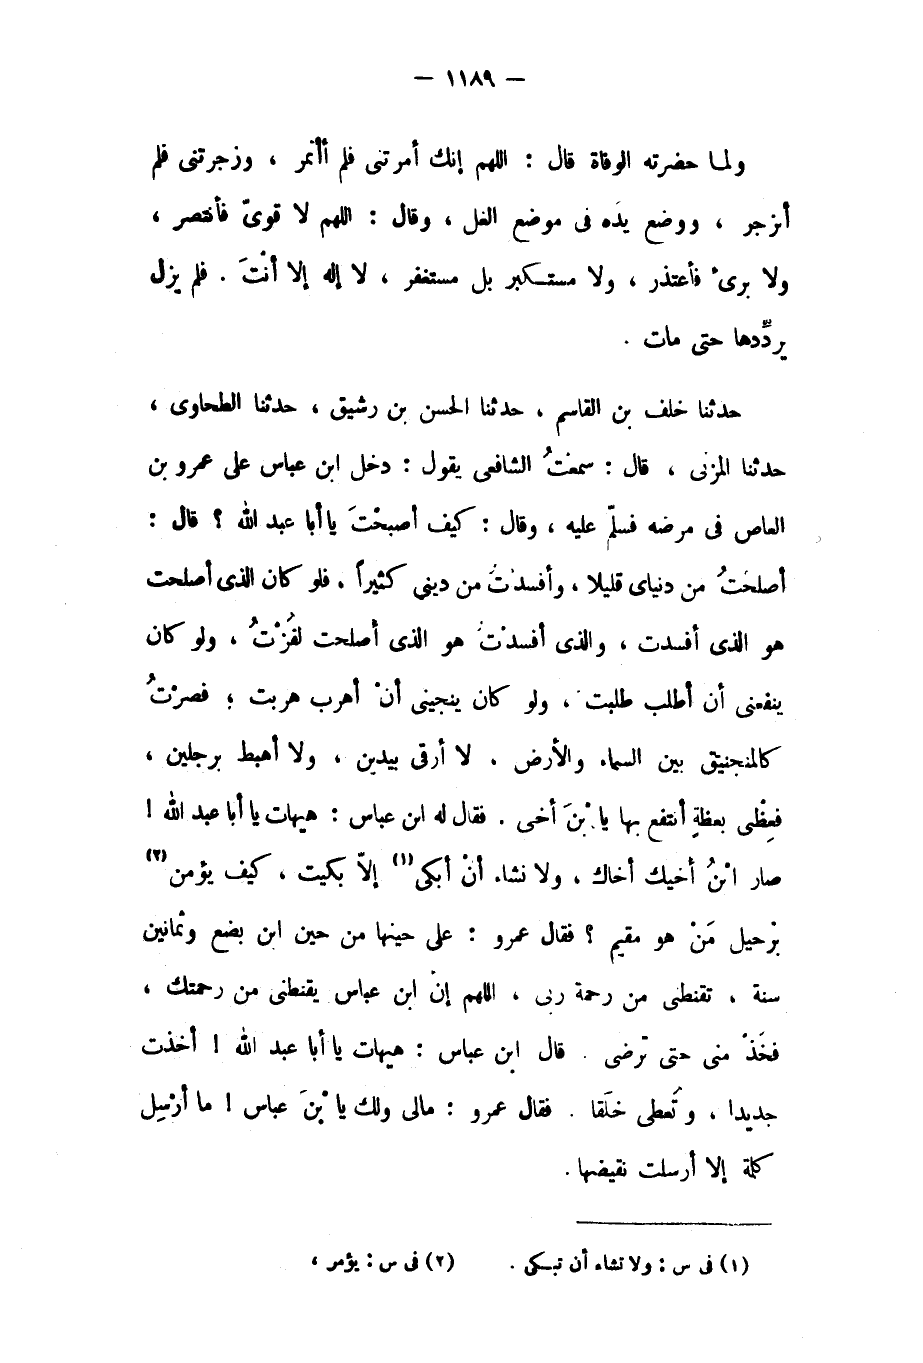 — ١١٨٩ —
ولما حضرته الوفاة قال : اللهم إنك أمرتنى فلم أأتمر ، وزجرتنى فلم
أنزجر ، ووضع يدَه فى موضع الغل ، وقال : اللهم لا قوىّ فأنتصر ،
ولا برىء فأعتذر ، ولا مستكبر بل مستغفر ، لا إله إلا أنْتَ . فلم يزل
يردِّدها حتى مات .
حدثنا خلف بن القاسم ، حدثنا الحسن بن رشيق ، حدثنا الطحاوى ،
حدثنا المزنى ، قال : سمعْتُ الشافعى يقول : دخل ابن عباس على عمرو بن
العاص فى مرضه فسلّم عليه ، وقال : كيف أصبحْتَ يا أبا عبد الله ؟ قال :
أصلحتُ من دنياى قليلا ، وأفسدْتُ من ديني كثيراً . فلو كان الذى أصلحت
هو الذى أفسدت ، والذى أفسدْتُ هو الذى أصلحت لفُزْتُ ، ولو كان
ينفعنى أن أطلب طلبت ، ولو كان ينجينى أنْ أهرب هربت ؛ فصرْتُ
كالمنجنيق بين السماء والأرض . لا أرقى بيدين ، ولا أهبط برجلين ،
فعِظْنى بعظةٍ أنتفع بها يا بْنَ أخى . فقال له ابن عباس : هيهات يا أبا عبد الله !
صار ابْنُ أخيك أخاك ، ولا نشاء أنْ أبكى(١) إلاّ بكيت ، كيف يؤمن(٢)
برْحيل مَنْ هو مقيم ؟ فقال عمرو : على حينها من حين ابن بضع وثمانين
سنة ، تقنطنى من رحمة ربى ، اللهم إنّ ابن عباس يقنطنى من رحمتك ،
فخَذْ منى حتى ترضى . قال ابن عباس : هيهات يا أبا عبد الله ! أخذت
جديدا ، وتُعطى خلَقا . فقال عمرو : مالى ولك يا بْنَ عباس ! ما أرْسِل
كلمة إلا أرسلت نقيضها .
(١) فى س : ولا تشاء أن تبكى . (٢) فى س : يؤمر ،